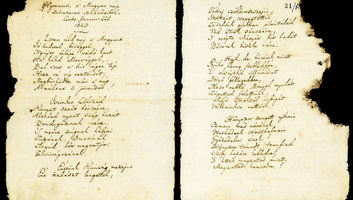 Hymnus, a' Magyar nép
zivataros századaiból.
Cseke
1823
Isten áldd meg a' Magyart
Jó kedvvel, bőséggel,
Nyújts feléje védő kart
Ha küzd ellenséggel;
Bal sors a' kit régen tép,
Hozz rá víg esztendőt,
Megbünhödte már e' nép
A' multat 's jövendőt.
Őseinket felhozád
Kárpát szent bérczére,
Általad nyert szép hazát
Bendegúznak vére.
'S merre zúgnak habjai
Tiszának, Dunának,
Árpád hős magzatjai
Felvirágozának.
Értünk Kunság mezein
Ért kalászt lengettél,
21/
Tokaj szőlővesszein
Nektárt csepegtettél.
Zászlónk gyakran plántálád
Vad török sáncára,
'S nyögte Mátyás bús hadát
Bécsnek büszke vára.
Hajh, de bűneink miatt
Gyúlt harag kebledben,
'S elsújtád villámidat
Dörgő fellegedben,
Most rabló Mongol nyilát
Zúgattad felettünk,
Majd töröktől rabigát
Vállainkra vettünk.
Hányszor zengett ajkain
Ozman vad népének
Vert hadunk csonthalmain
Győzedelmi ének!
Hányszor támadt tenfiad
Szép hazám kebledre,
'S lettél magzatod miatt
Magzatod